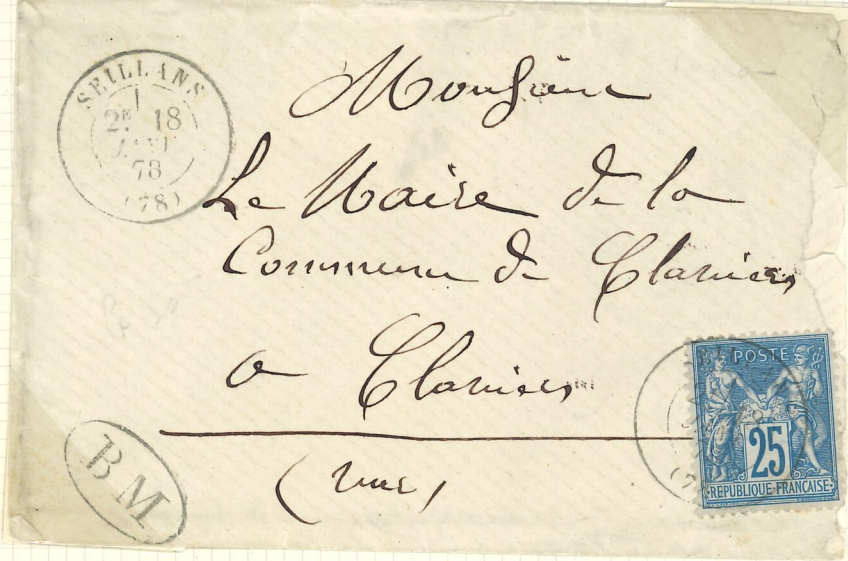 SEILLANS
2E 18
JANV
78
(78)
Monsieur
Le Maire de la
Commune de Claviers
a Claviers
(Var)
BM
POSTE
25
REPUBLIQUE FRANCAISE